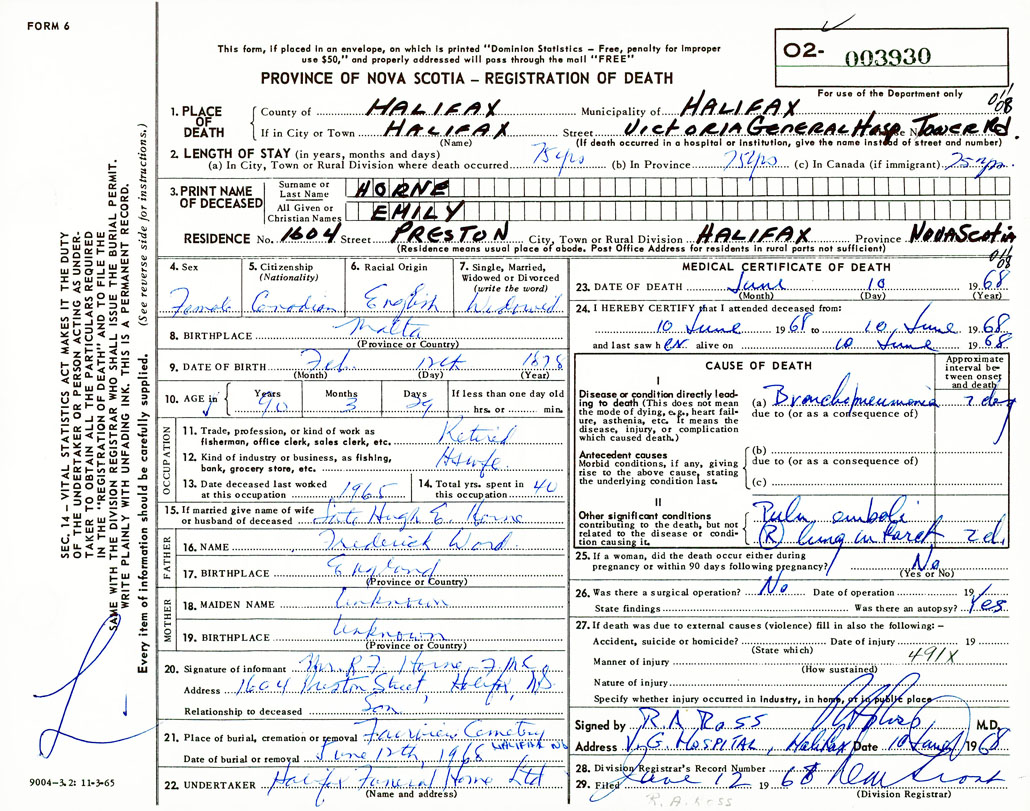 FORM 6
This form, if placed in an envelope, on which is printed "Dominion Statistics – Free, penalty for improper
use $50," and properly addressed will pass through the mail "FREE"
PROVINCE OF NOVA SCOTIA – REGISTRATION OF DEATH
02- 003930
For use of the Department only
SEC. 14 – VITAL STATISTICS ACT MAKES IT THE DUTY
OF THE UNDERTAKER OR PERSON ACTING AS UNDER-
TAKER TO OBTAIN ALL THE PARTICULARS REQUIRED
IN THE "REGISTRATION OF DEATH" AND TO FILE THE
SAME WITH THE DIVISION REGISTRAR WHO SHALL ISSUE THE BURIAL PERMIT.
WRITE PLAINLY WITH UNFADING INK. THIS IS A PERMANENT RECORD.
Every item of information should be carefully supplied. (See reverse side for instructions.)
1. PLACE OF DEATH County of HALIFAX Municipality of HALIFAX
If in City or Town HALIFAX Street VICTORIA GENERAL HOSP. TOWER Rd.
(Name) (If death occurred in a hospital or institution, give the name instead of street and number)
2. LENGTH OF STAY (in years, months and days)
(a) In City, Town or Rural Division where death occurred 75 yrs (b) In Province 75 yrs (c) In Canada (if immigrant) 75 yrs
3. PRINT NAME OF DECEASED Surname or Last Name HORNE
All Given or Christian Names EMILY
RESIDENCE No. 1604 Street PRESTON City, Town or Rural Division HALIFAX Province NOVA SCOTIA
(Residence means usual place of abode. Post Office Address for residents in rural parts not sufficient)
4. Sex 5. Citizenship (Nationality) 6. Racial Origin 7. Single, Married, Widowed or Divorced (write the word)
Female Canadian English Widowed
8. BIRTHPLACE Malta
(Province or Country)
9. DATE OF BIRTH Feb 12th 1878
(Month) (Day) (Year)
10. AGE in Years Months Days If less than one day old
90 3 29 hrs. or min.
OCCUPATION
11. Trade, profession, or kind of work as fisherman, office clerk, sales clerk, etc. Retired
12. Kind of industry or business, as fishing, bank, grocery store, etc. Hswfe.
13. Date deceased last worked at this occupation 1965 14. Total yrs. spent in this occupation 40
15. If married give name of wife or husband of deceased Late Hugh E. Horne
FATHER
16. NAME Frederick Word
17. BIRTHPLACE England
(Province or Country)
MOTHER
18. MAIDEN NAME Unknown
19. BIRTHPLACE Unknown
(Province or Country)
20. Signature of informant Mr. R F Horne
Address 1604 Preston Street, Halifax, NS
Relationship to deceased Son
21. Place of burial, cremation or removal Fairview Cemetery
HALIFAX NS
Date of burial or removal June 12th, 1968
22. UNDERTAKER Halifax Funeral Home Ltd
(Name and address)
9004-3.2: 11-3-65
MEDICAL CERTIFICATE OF DEATH
23. DATE OF DEATH June 10 1968
(Month) (Day) (Year)
24. I HEREBY CERTIFY that I attended deceased from:
10 June 1968 to 10 June 1968
and last saw her alive on 10 June 1968
CAUSE OF DEATH
Approximate interval between onset and death
I
Disease or condition directly lead-
ing to death (This does not mean
the mode of dying, e.g., heart fail-
ure, asthenia, etc. It means the
disease, injury, or complication
which caused death.)
(a) Bronchopneumonia 2 day
due to (or as a consequence of)
Antecedent causes
Morbid conditions, if any, giving
rise to the above cause, stating
the underlying condition last.
(b)
due to (or as a consequence of)
(c)
II
Other significant conditions
contributing to the death, but not
related to the disease or condi-
tion causing it.
Pulm emboli
(R) lung infarct 2 d.
25. If a woman, did the death occur either during
pregnancy or within 90 days following pregnancy? No
(Yes or No)
26. Was there a surgical operation? No Date of operation 19
State findings Was there an autopsy? Yes
27. If death was due to external causes (violence) fill in also the following: –
Accident, suicide or homicide? Date of injury 19
(State which) 491X
Manner of injury
(How sustained)
Nature of injury
Specify whether injury occurred in industry, in home, or in public place
Signed by R.A. Ross M.D.
Address V.G. HOSPITAL, Halifax Date 10 June 1968
28. Division Registrar's Record Number
29. Filed June 12 1968
(Division Registrar)
R.A. Ross